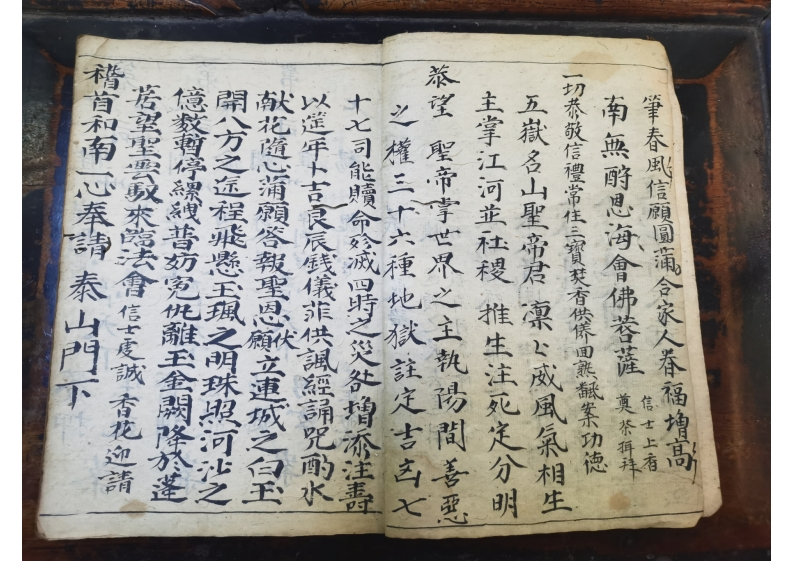 筆春風信願圓滿合家人眷福增高
南無酧恩海會佛菩薩 信士上香 奠茶拜拜
一切恭敬信禮常住三寶焚香供養回熟齋案功德
五嶽名山聖帝君 凜〻威風氣相生
主掌江河並社稷 推生注死定分明
恭望 聖帝掌世界之主執陽間善惡
之權三十六種地獄註定吉凶七
十七司能贖命殄滅四時之災咎增添注壽
以筵年十吉良辰錢儀菲供諷經誦咒酌水
献花隨心蒲願答報聖恩伏願立連城之白玉
開八方之途程飛懸玉珮之明珠照河沙之
億数暫停縲絏昔妨冤仇離玉金闕降於蓬
萡望聖雲馭來臨法會 信士虔誠 香花迎請
稽首和南一心奉請 泰山門下